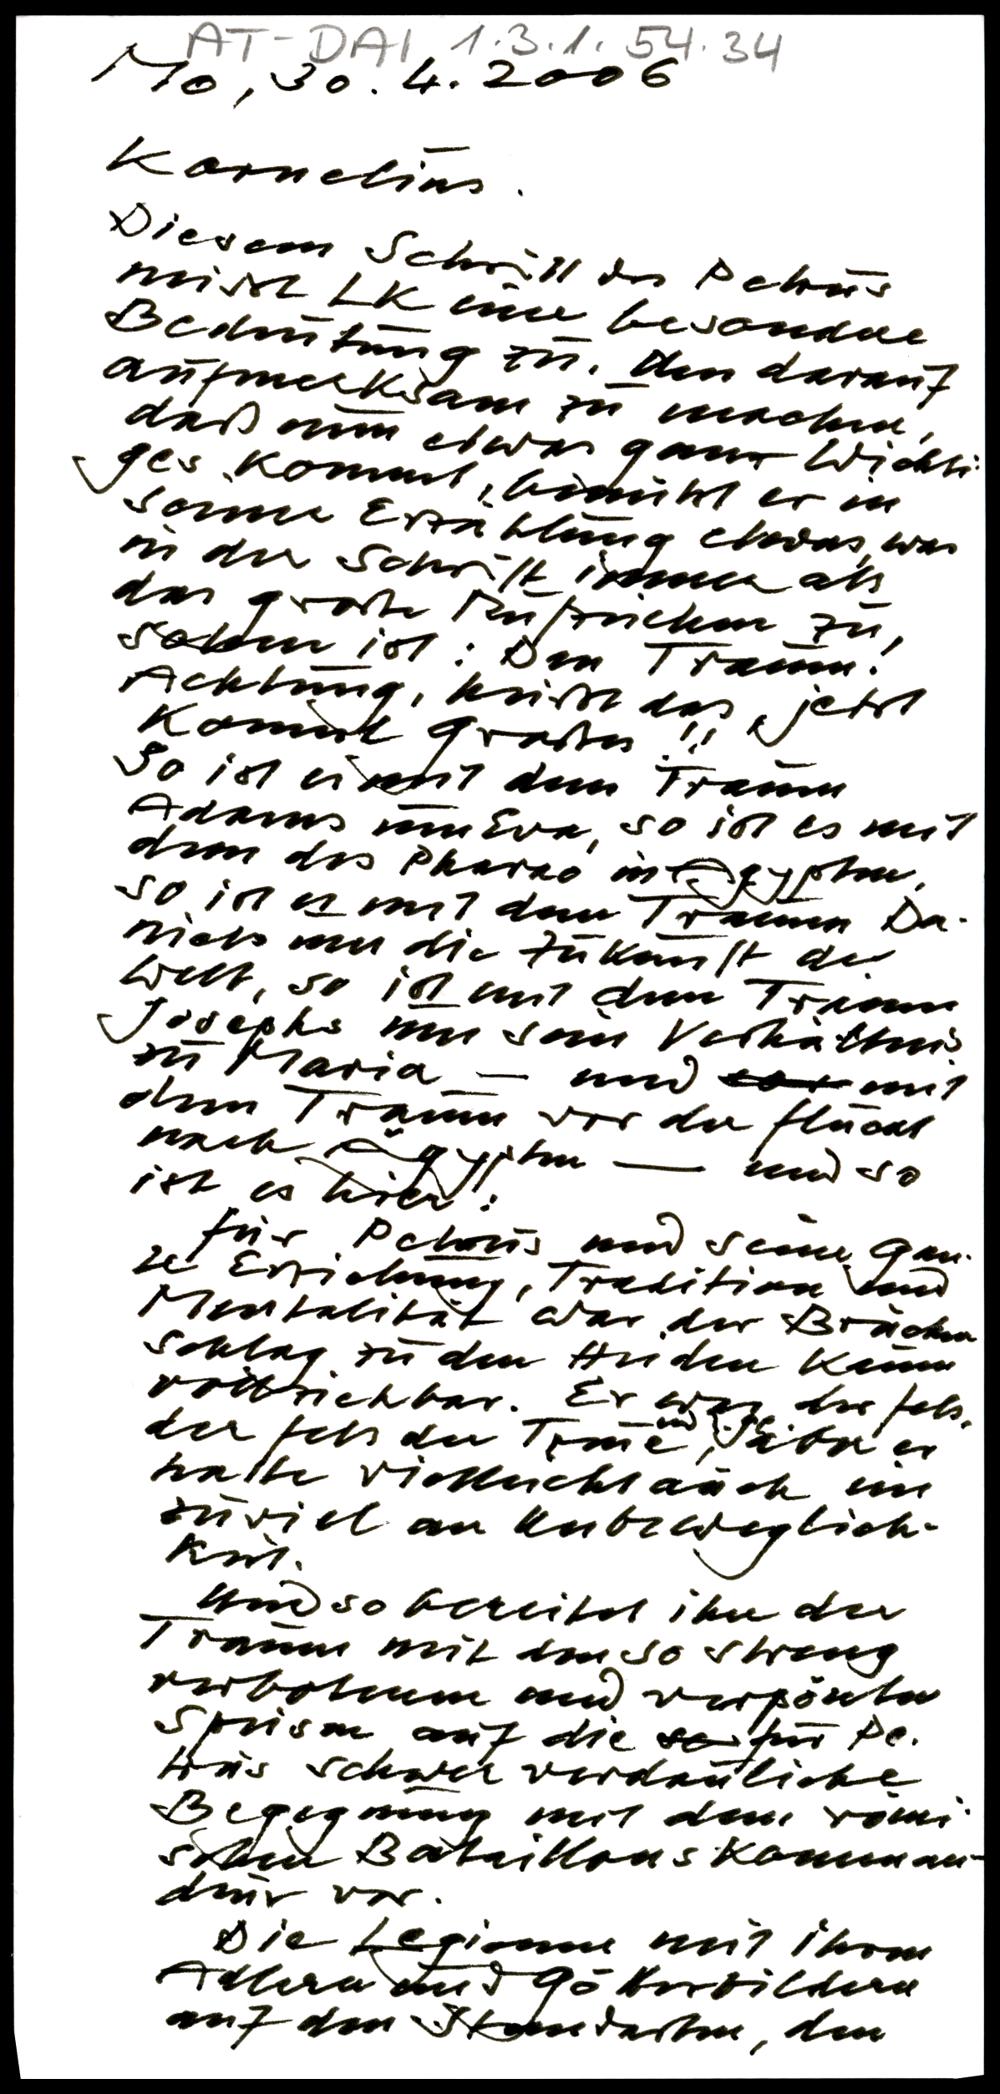 AT-DAI 1.3.1.54.34
Mo, 30.4.2006
Kornelius.
Diesem Schritt des Petrus
misst LK eine besondere
Bedeutung zu. Um darauf
aufmerksam zu machen,
daß nun etwas ganz Wichti-
ges kommt, benützt er in
seiner Erzählung etwas, was
in der Schrift immer als
das große Rufzeichen zu
sehen ist: Den Traum!
Achtung, heißt das, jetzt
kommt Großes!!
So ist es mit dem Traum
Adams um Eva, so ist es mit
dem des Pharao in Ägypten,
so ist es mit dem Traum Da-
niels um die Zukunft der
Welt, so ist mit dem Traum
Josephs um sein Verhältnis
zu Maria – und mit
dem Traum vor der Flucht
nach Ägypten — und so
ist es hier:
Für Petrus und seine gan-
ze Erziehung, Tradition und
Mentalität war der Brücken
schlag zu den Heiden kaum
vollziehbar. Er war der Fels,
der Fels der Treue, aber er
hatte vielleicht auch ein
zuviel an Unbeweglich-
keit.
Und so bereitet ihn der
Traum mit den so streng
verbotenen und verpönten
Speisen auf die für Pe-
trus schwer verdauliche
Begegnung mit dem römi-
schen Bataillonskomman-
deur vor.
Die Legionen mit ihren
Adlern und Götterbildern
auf den Standarten, den